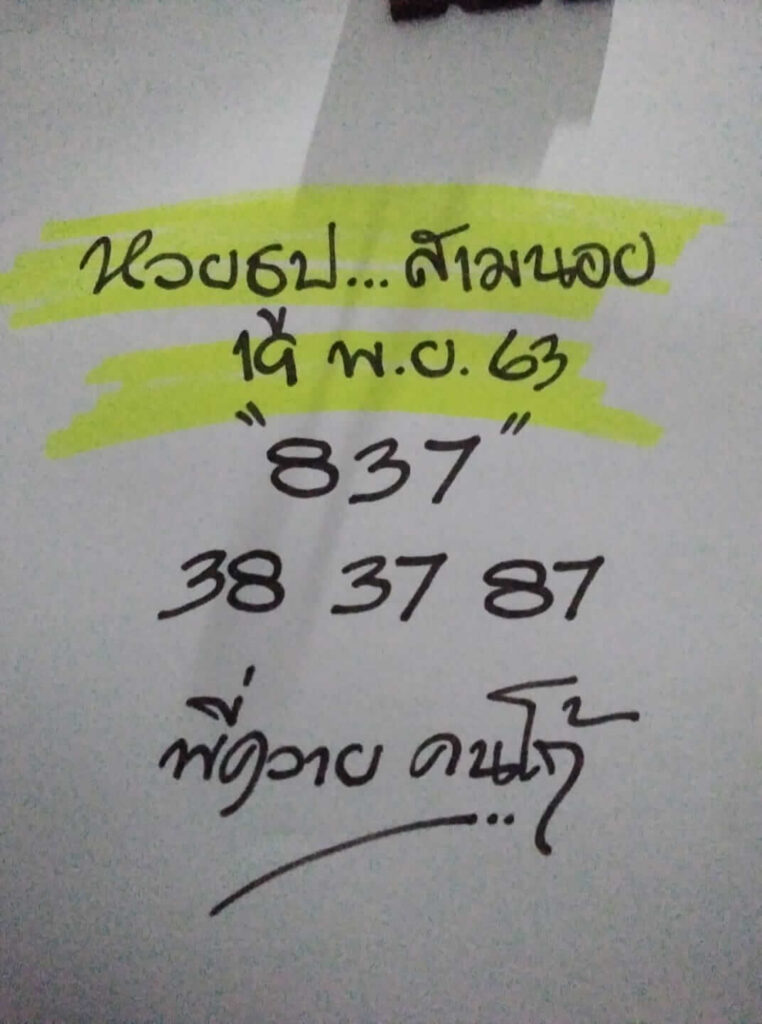 หวยธป...สามนอย
1นี้ พ.ย. 63
"837"
38 37 87
พี่ควาย คนโก้...